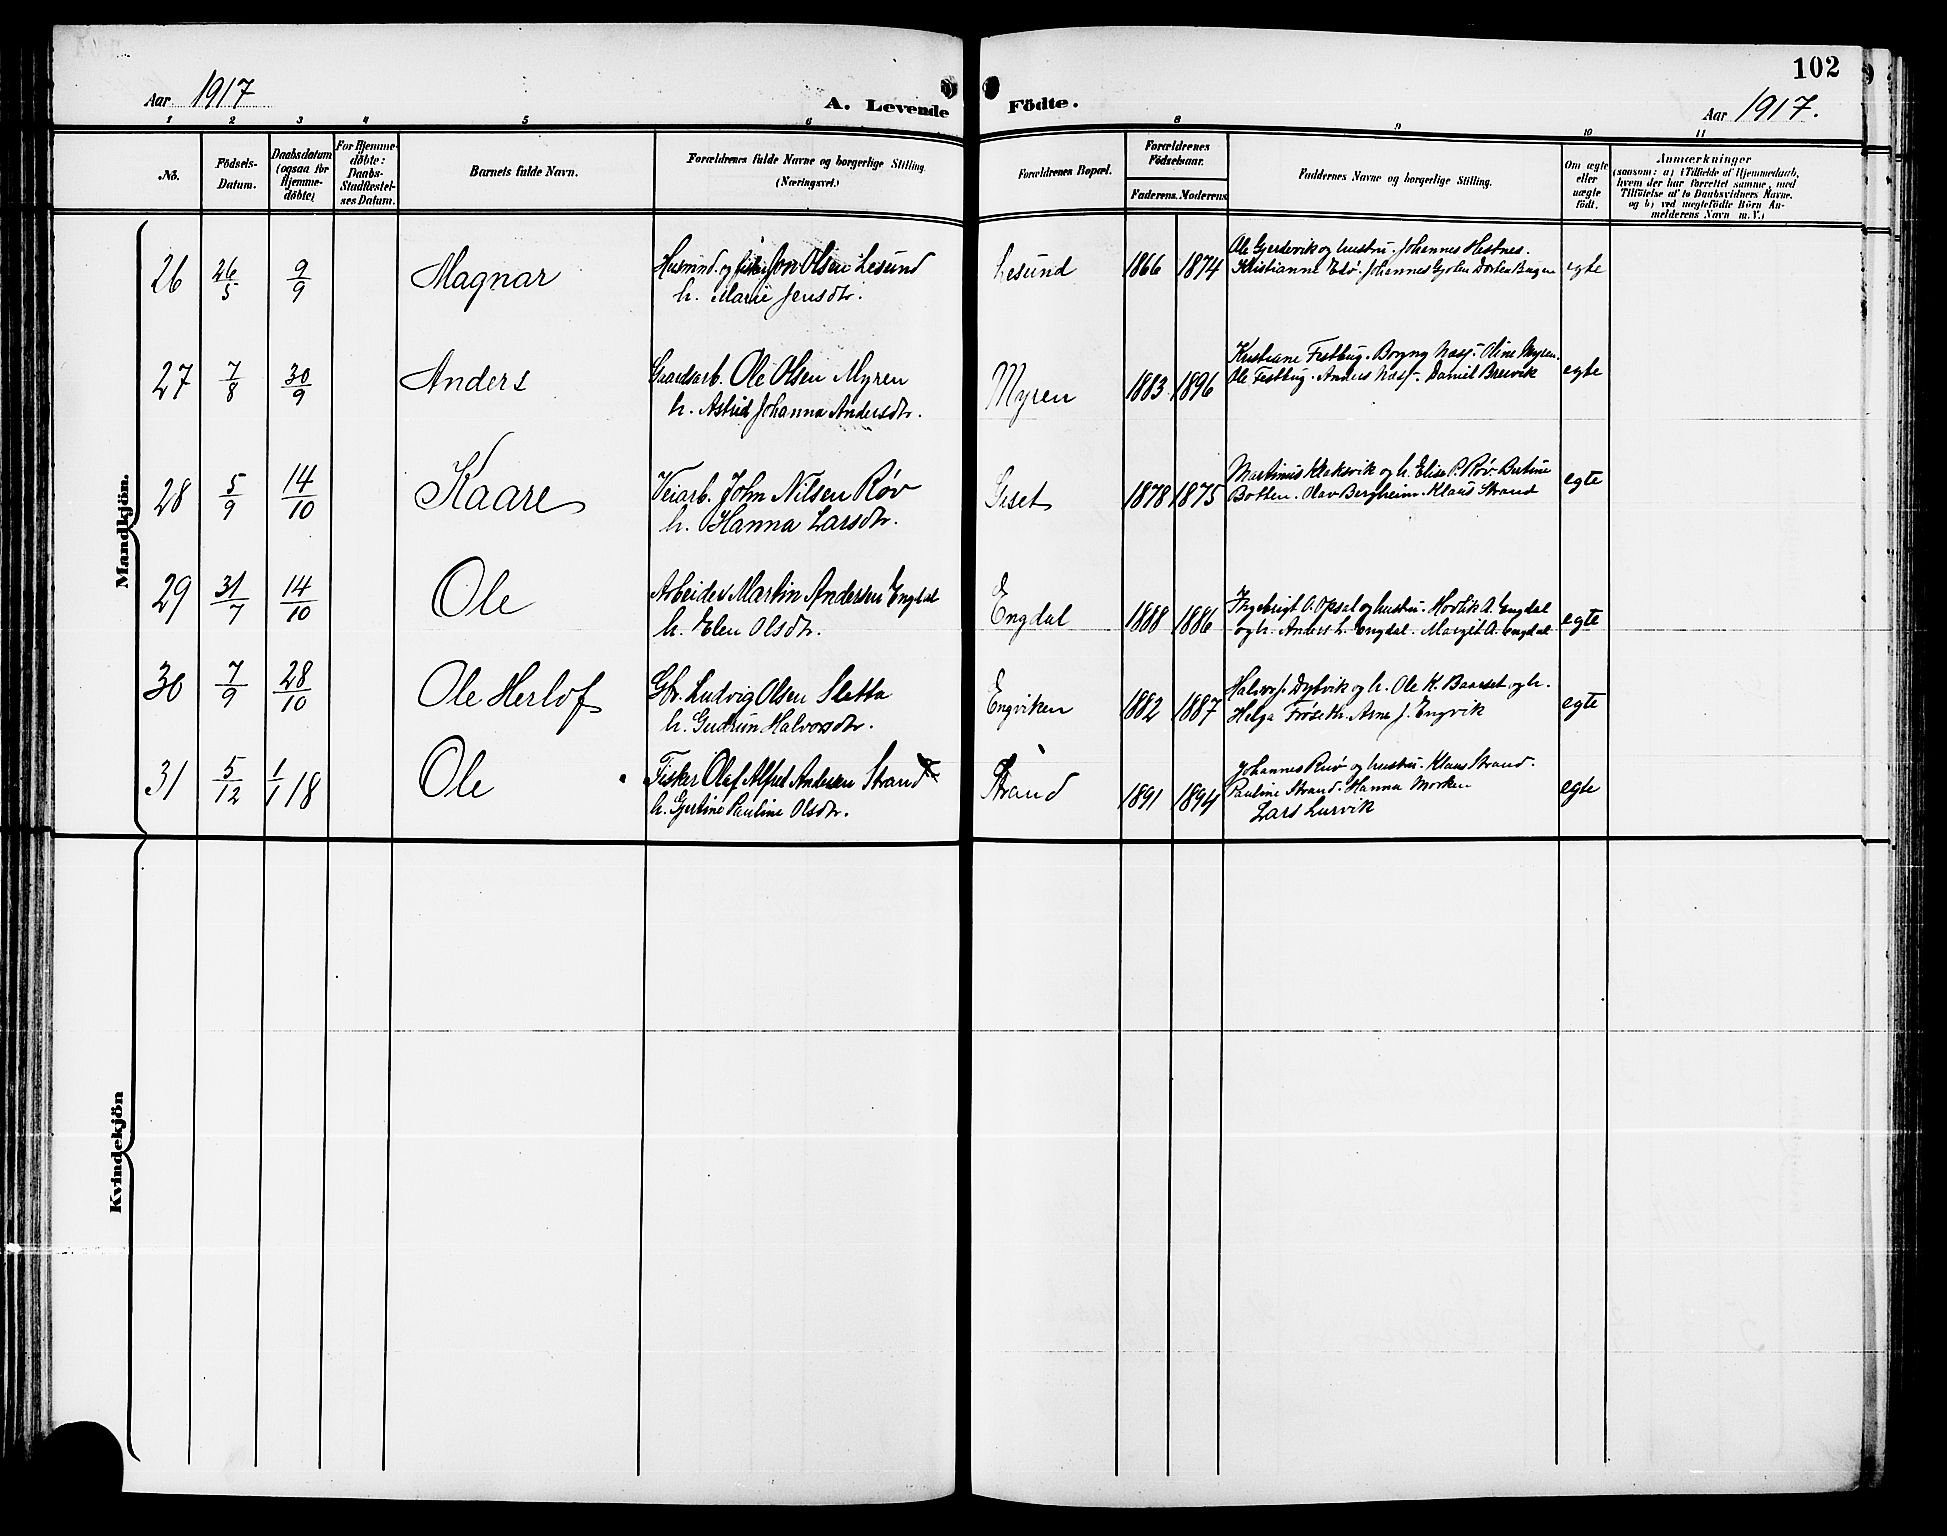 102
Aar 1917
A. Levende Födte.
Aar 1917.
1 2 3 4 5 6 8 9 10 11
No.
Födsels-Datum.
Daabsdatum (ogsaa for Hjemme-døbte)
For Hjemme-døbte: Daabs-Stadfæstel-ses Datum.
Barnets fulde Navn.
Forældrenes fulde Navne og borgerlige Stilling.
(Næringsvei.)
Forældrenes Bopæl.
Forældrenes Födselsaar.
Faderens. Moderens.
Faddernes Navne og borgerlige Stilling.
Om ægte eller uægte födt.
Anmærkninger
(saasom: a) i Tilfælde af Hjemmedaab,
hvem der har forrettet samme, med
Tilföielse af to Daabsvidners Navne.
og b) ved uægtefödte Börn An-
melderens Navn m. V.)
Mandkjön.
26 26/5 9/9 Magnar Husmd. og fisker Jon Olsen Lesund
h. Marie Jensdtr.
Lesund 1866 1874 Ole Gjerdevik og hustru. Johannes Hestnes.
Kristianne Edø. Johannes Dorlea egte
27 7/8 30/9 Anders Gaardsarb. Ole Olsen Myren
h. Astrid Johanna Andersdtr.
Myren 1883 1896 Kristiane Festbug. Borgny Næss. Oline Myren.
Ole Festbug. Anders Næss. Daniel Brevik egte
28 5/9 14/10 Kaare Veiarb. John Nilsen Røv
h. Hanna Larsdtr.
Settem 1878 1875 Martinus Klaksvik og h. Elise P. Røv. Bertine
Botten. Olav Bergheim. Klaus Strand egte
29 31/7 14/10 Ole Arbeider Martin Andersen Engdal
h. Elen Olsdtr.
Engdal 1888 1886 Ingebrigt O. Opsal og hustru. A. Engdal
og h. Anders L. Engdal. Margit A. Engdal egte
30 7/9 28/10 Ole Herlof Gbr. Ludvig Olsen Sletta
h. Gudrun Halvorsdtr.
Engviken 1882 1887 Halvor J. Dybvik og h. Ole K. Baarset og h.
Helga Frøseth. Arne J. Engvik egte
31 5/12 1/1 18 Ole Fisker Olaf Alfred Andersen Strand
h. Gjertine Pauline Olsdtr.
Strand 1891 1894 Johannes Ruø og hustru. Klaus Strand.
Pauline Strand. Hanna Morken
Lars Lurvik egte
Kvindekjön